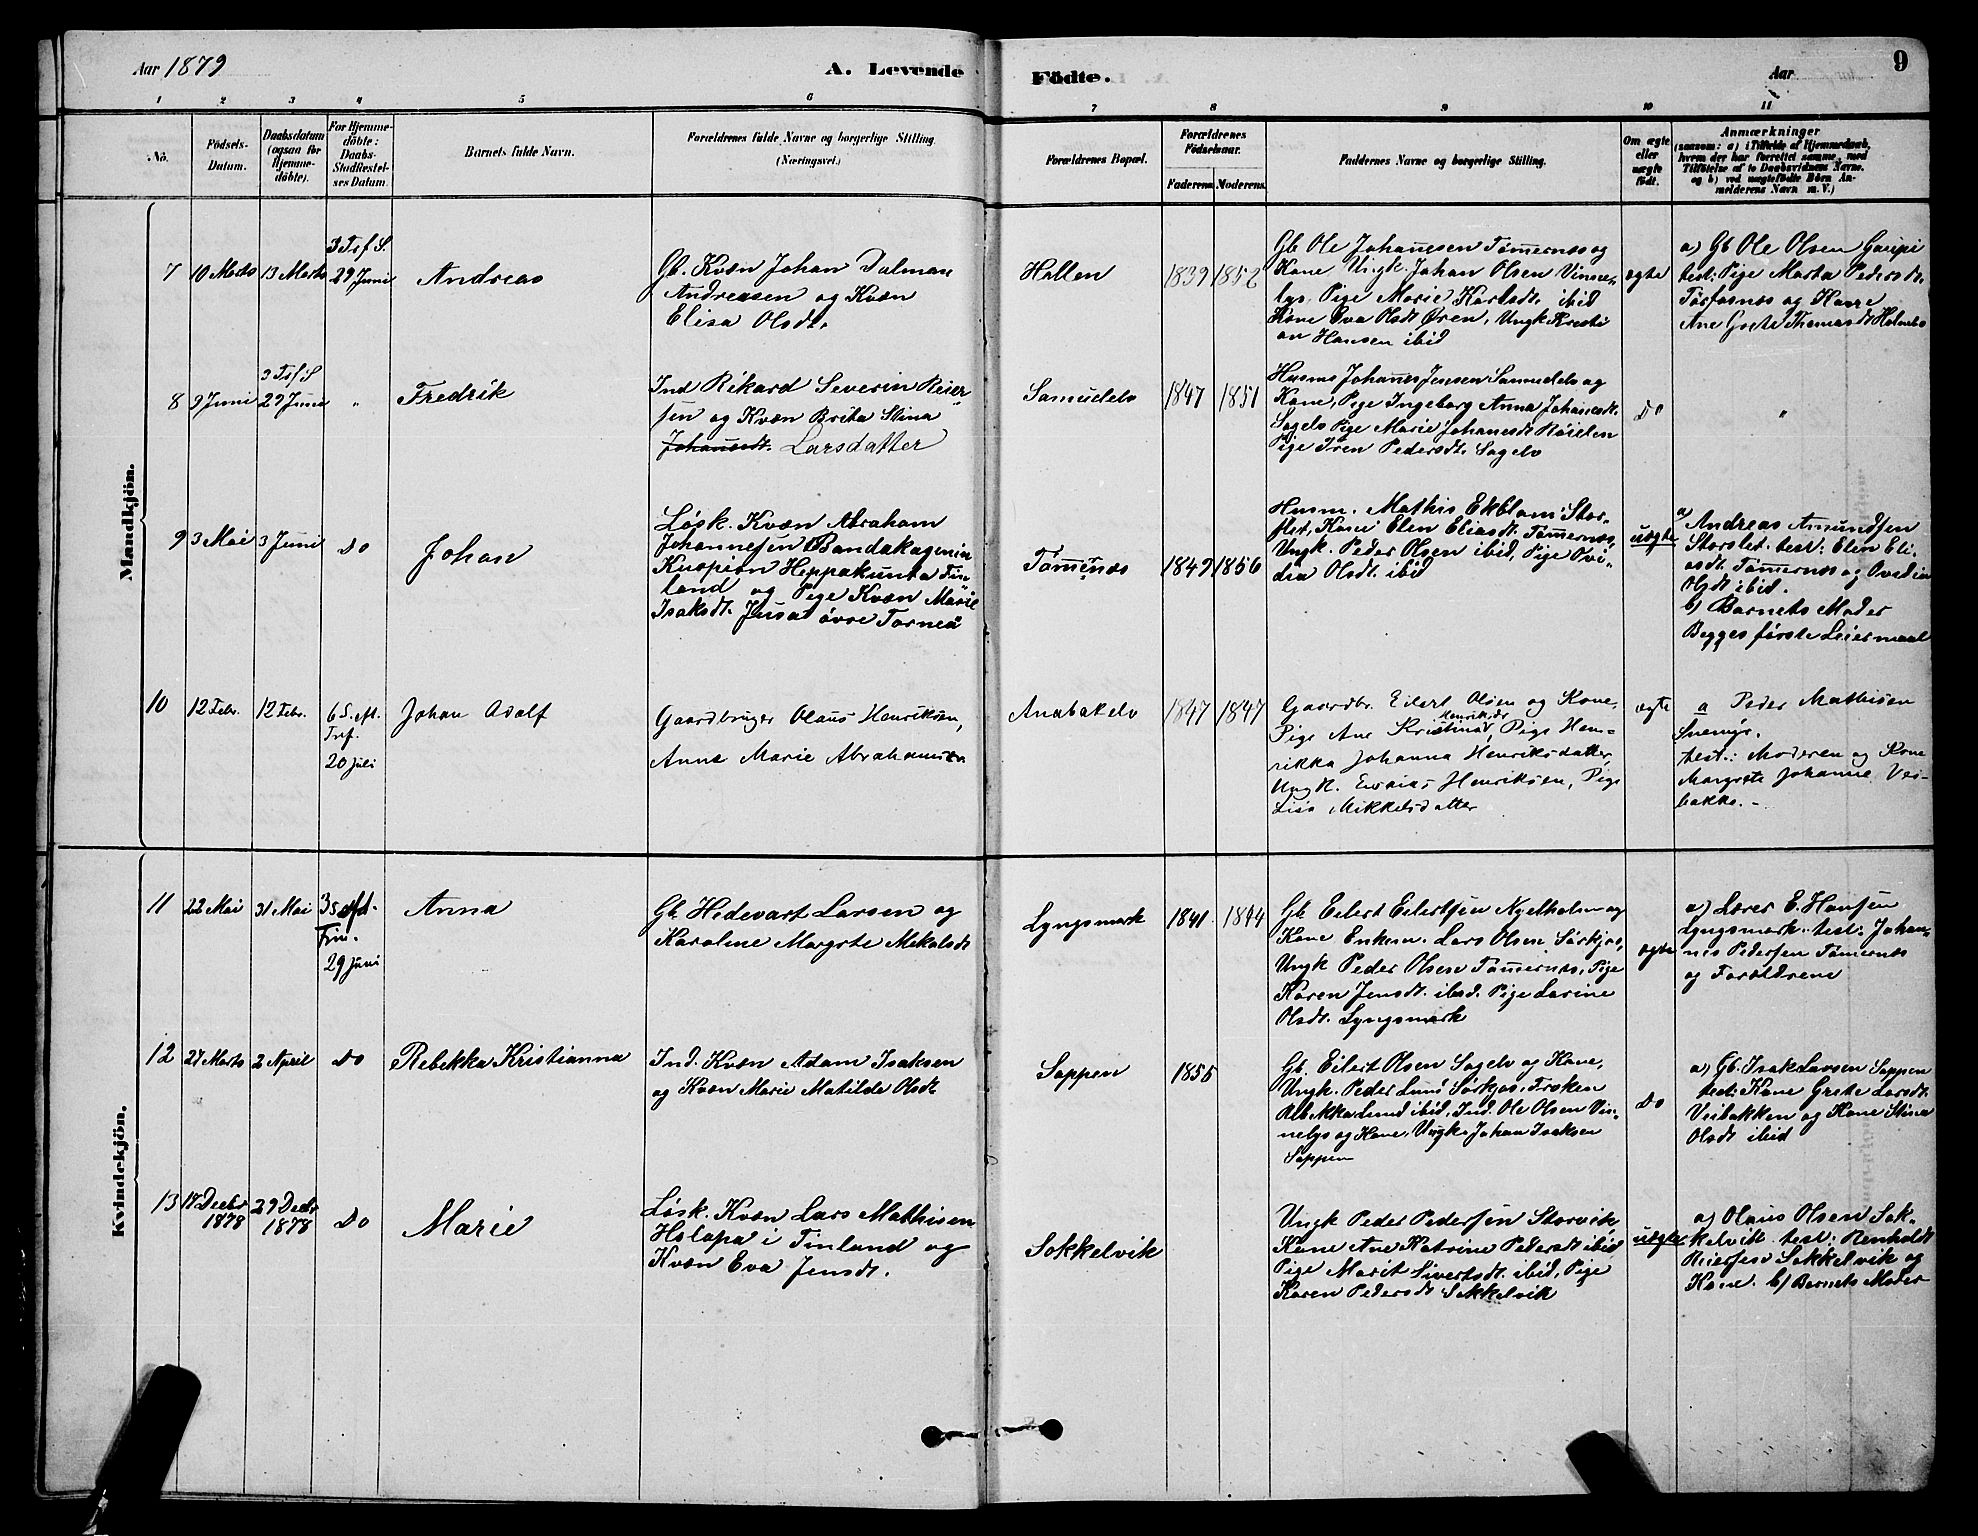 Aar 1879
A. Levende
Födte.
Aar
9
1 2 3 4 5 6 7 8 9 10 11
No.
Födsels-
Datum.
Daabsdatum
(ogsaa for
Hjemme-
döbte).
For Hjemme-
döbte:
Daabs-
Stadfæstel-
ses Datum.
Barnets fulde Navn.
Forældrenes fulde Navne og borgerlige Stilling
(Næringsvei.)
Forældrenes Bopæl.
Forældrenes
Födselsaar.
Faderens
Moderens.
Faddernes Navne og borgerlige Stilling.
Om ægte
eller
uægte
födt.
Anmærkninger
(saasom: a) i Tilfælde af Hjemmedaab,
hvem der har forrettet samme, med
Tilföielse af to Daabsvidners Navne.
og b) ved uægtefödte Börn An-
melderens Navn m. V.)
Mandkjön.
7
10 Marts
13 Marts
3 Tr. f S.
29 Juni
Andreas
Gb. Kvæn Johan Dalman
Andreasen og Kvæn
Elisa Olsdt.
Hallen
1839
1852
Gb Ole Johanesen Tømernæs og
Kane Ungk. Johan Olsen Vinne-
lys, Pige Marie Karlsdt. ibid
Kone Eva Olsdt Øren, Ungk Kristi
an Hansen ibid
ægte
a) Gb Ole Olsen Gaupi
test: Pige Marta Pedersdt.
Tørfosnæs og Kane
Ane Grete Thomasdt Holmbo
8
9 Juni
3 Tr f S
29 Juni
"
Fredrik
Ind Rikard Severin Reier-
sen og Kvæn Brita Stina
Johansdt. Larsdatter
Samuelelv
1847
1851
Husm Johanes Jensen Samuelelv og
Kane, Pige Ingeborg Anna Johanesdt.
Sagelv Pige Marie Johanesdt Røielen
Pige Iren Pedersdt. Sagelv
Do
"
9
3 Mai
3 Juni
Do
Johan
Løsk. Kvæn Abraham
Johannesen Bandakagenin
Kuopion Heppakunta Fin-
land og Pige Kvæn Marie
Isaksdt. Jusa øvre Torneå
Tømernæs
1849
1856
Husm. Mathis Ekblom Stor-
slet, Kane Elen Eliasdt. Tømernæs,
Ungk. Peder Olsen ibid, Pige Ovi-
dia Olsdt. ibid
uægte
a)
Andreas Amundsen
Storslet. test: Elen Eli-
asdt. Tømernæs og Ovedia
Olsdt ibid.
b) Barnets Moder
Begges første Leiermaal
10
12 Febr.
12 Febr.
6 S. At.
Tref.
20 Juli
Johan Adolf
Gaardbruger Olaus Henriksen,
Anne Marie Abrahams
Anabakelv
1847
1847
Gaardbr. Eilert Olsen og Kone,
Pige Ane Kristine Henriksdr, Pige Hen-
rikka Johanna Henriksdatter,
Ungk. Esaias Henriksen, Pige
Lisa Mikkelsdatter
ægte
a Peder Mathisen
Snemyr.
test.: Moderen og Kone
Margrete Johanne Vei-
bakke. -
Kvindekjön.
11
22 Mai
31 Mai
3 S eft.
Trin.
29 Juni
Anna
Gb. Hedevart Larsen og
Karoline Margrete Mikalsdt
Lyngsmark
1841.
1844
Gb Eilert Eilertsen Nyelholm og
Kane Enkem. Lars Olsen Sørkjos,
Ungk Peder Olsen Tømernæs, Pige
Karen Jensdt. ibid. Pige Lavine
Olsdt. Lyngsmark
ægte
a) Lærer E. Hansen
Lyngsmark. test: Johan-
nes Pedersen Tømernæs
og Forældrene
12
27 Marts
2 April
Do
Rebekka Kristianna
Ind. Kvæn Adam Isaksen
og Kvæn Marie Matilde Olsdt
Sappen
1855
Gb. Eilert Olsen Sagelv og Kane,
Ungk. Peder Lund Sørkjos, Frøken
Rebekka Lund ibid, Ind. Ole Olsen Vin-
nelys og Kane, Ungk. Johan Isaksen
Sappen
Do
a) Gb. Isak Larsen Sappen
test: Kane Grete Larsdt.
Veibakken og Kane Stina
Olsdt ibid
13
17 Decbr
1878
29 Decbr
1878
Do
Marie
Løsk. Kvæn Lars Mathisen
Holapa i Finland og
Kvæn Eva Jensdt.
Sokkelvik
Ungk Peder Pedersen Storvik
Kane Ane Katrine Pedersdt ibid,
Pige Marit Sivertsdt. ibid, Pige
Karen Pedersdt Sokkelvik
uægte
a) Olaus Olsen Sok-
kelvik test: Renholdt
Reiersen Sokkelvik og
Kane. b) Barnets Moder